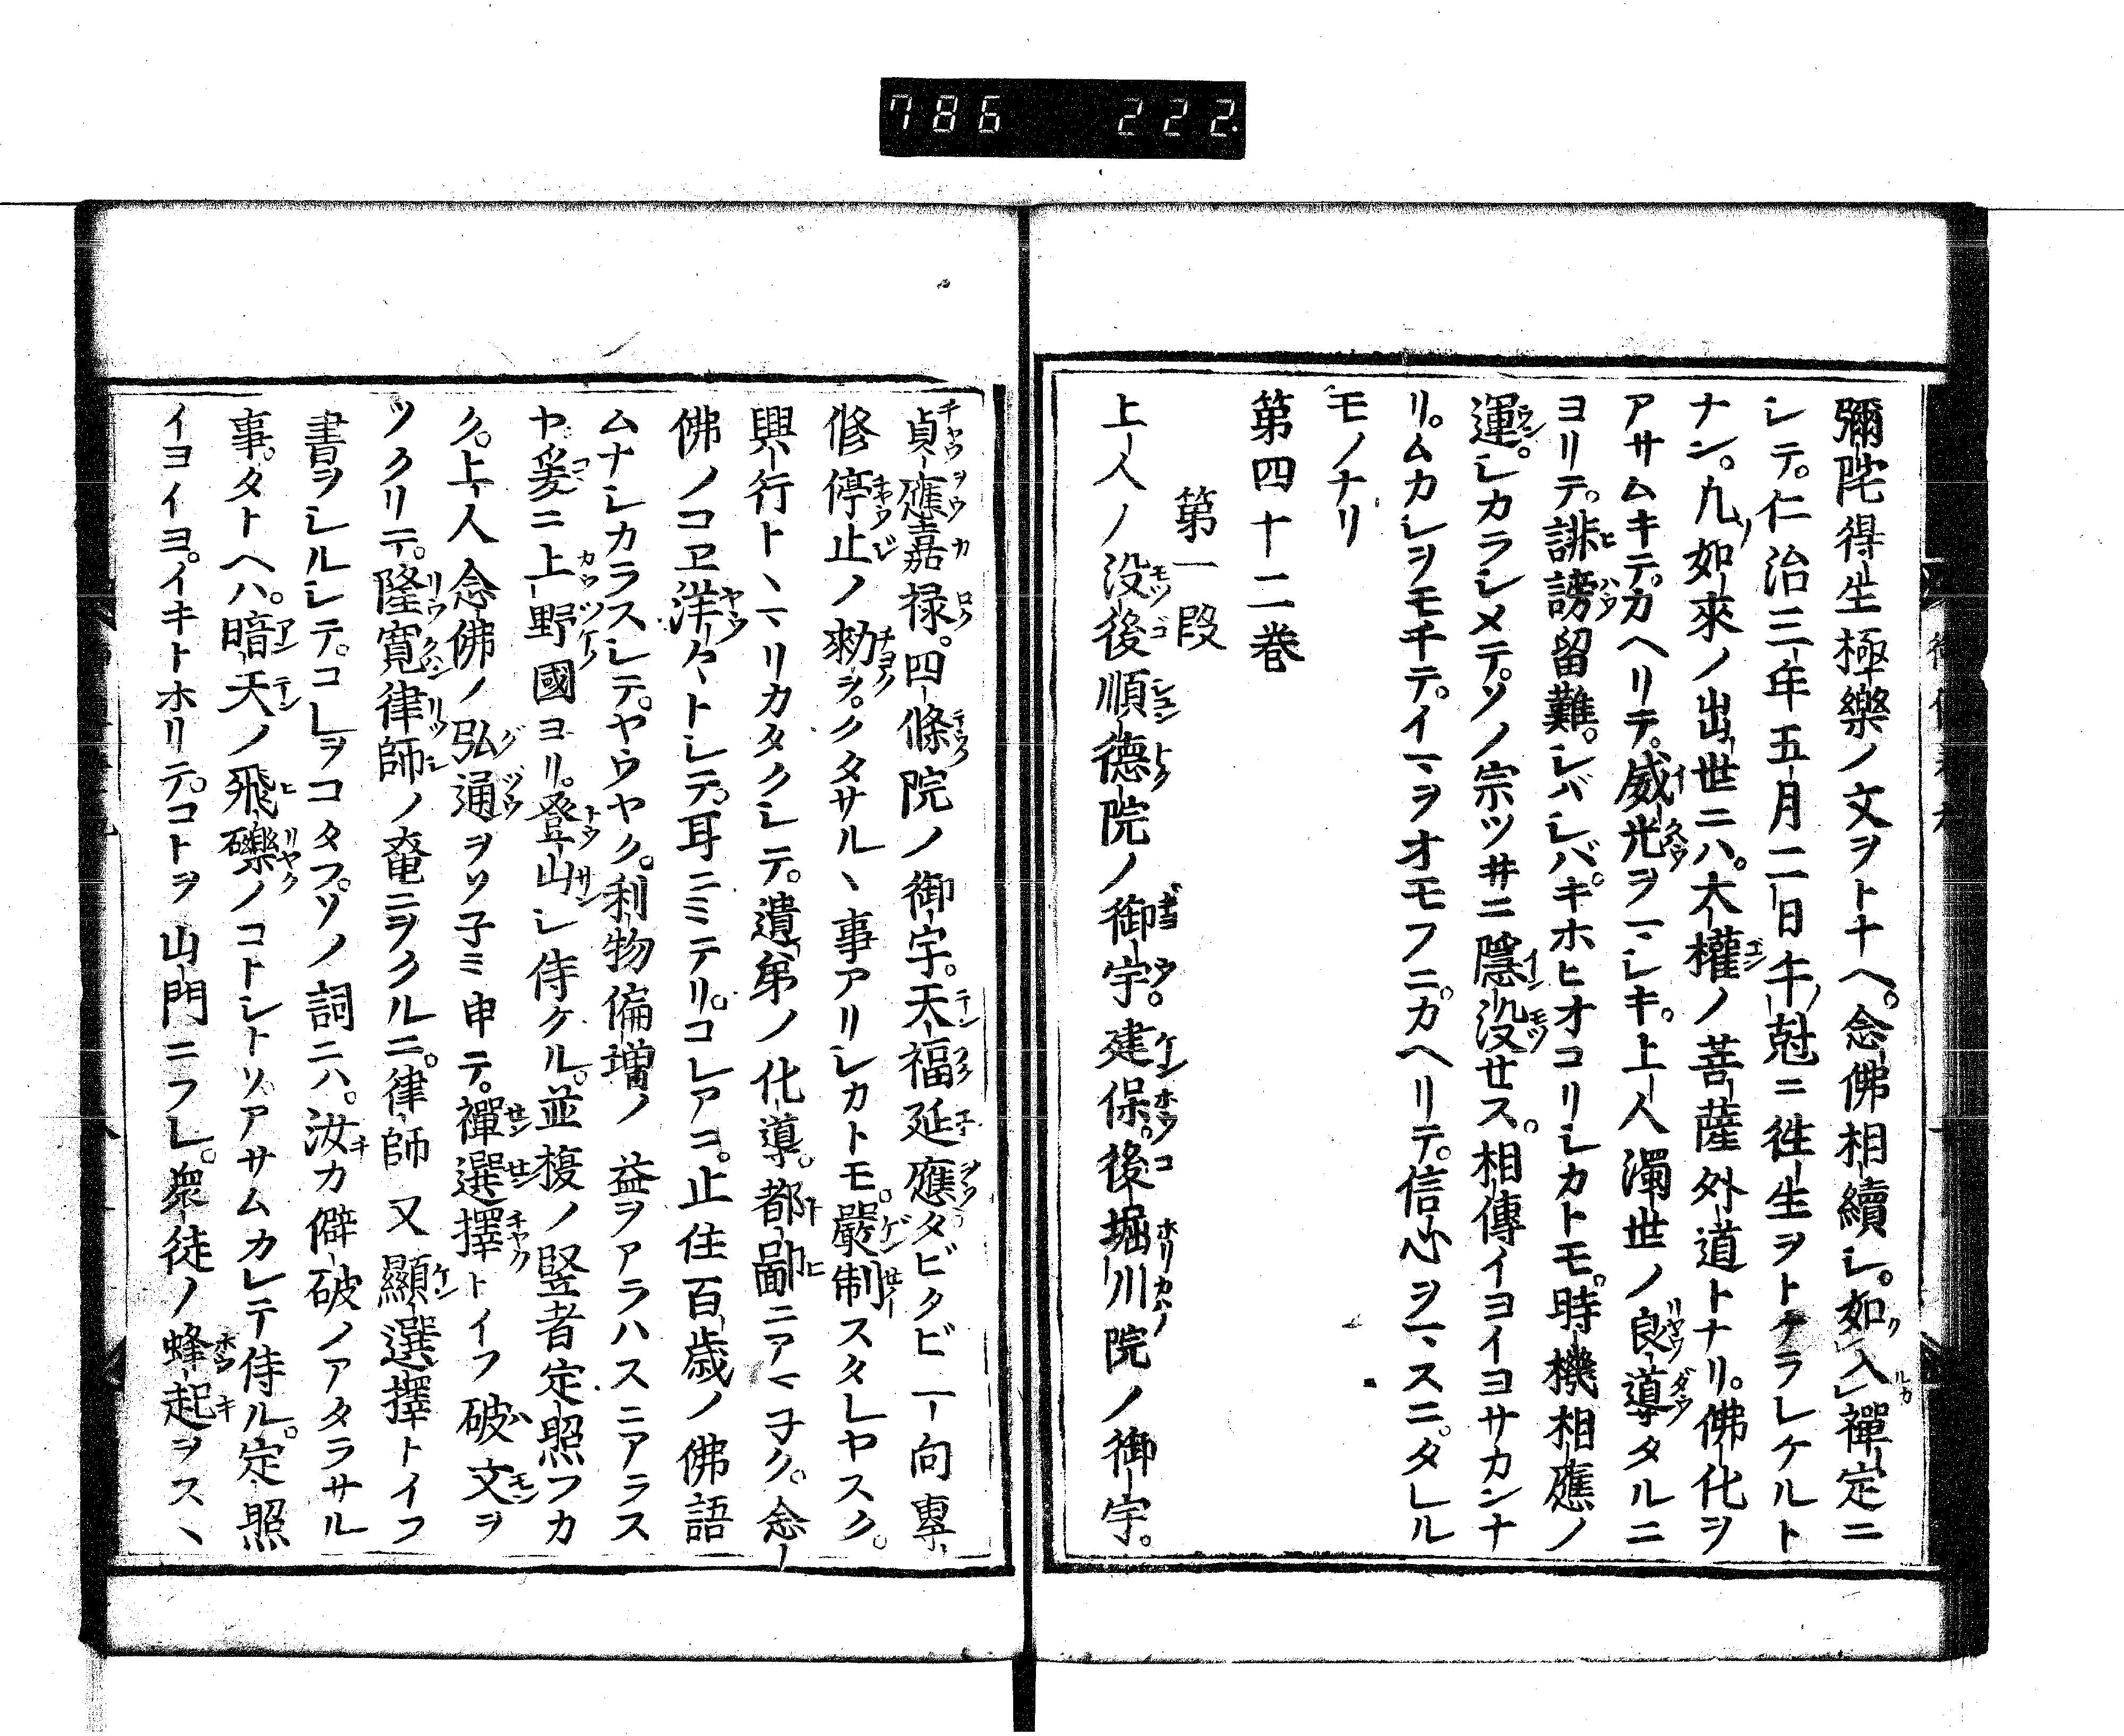 786 222.
彌陀得生極樂ノ文ヲトナヘ。念佛相續シ。如入禪定ニ
シテ。仁治三年五月二日午尅ニ徃生ヲトケラレケルト
ナン。凡如來ノ出世ニハ。大權ノ菩薩外道トナリ。佛化ヲ
アサムキテ。カヘリテ。威光ヲマシキ。上人濁世ノ良導タルニ
ヨリテ。誹謗留難。シバシバ。キホヒオコリシカトモ。時機相應ノ
運。シカラシメテ。ソノ宗ツ井ニ隱没セス。相傳イヨイヨサカンナ
リ。ムカシヲモチテ。イマヲオモフニ。カヘリテ。信心ヲマスニ。タレル
モノナリ
第四十二巻
第一段
上人ノ没後順德院ノ御宇。建保。後堀川院ノ御宇。
貞應嘉禄。四條院ノ御宇。天福延應タビタビ一向專
修停止ノ勅ヲ。クタサルヽ事アリシカトモ。嚴制スタレヤスク。
興行トヽマリカタクシテ。遺弟ノ化導。都鄙ニアマネク。念
佛ノコヱ洋々トシテ。耳ニミテリ。コレアニ。止住百歳ノ佛語
ムナシカラスシテ。ヤウヤク。利物偏增ノ益ヲアラハスニアラス
ヤ。爰ニ上野國ヨリ。登山シ侍ケル。並榎ノ竪者定照フカ
ク。上人念佛ノ弘通ヲソネミ申テ。禪選擇トイフ破文ヲ
ツクリテ。隆寛律師ノ菴ニヲクルニ。律師又顯選擇トイフ
書ヲシルシテ。コレヲコタフ。ソノ詞ニハ。汝カ僻破ノアタラサル
事。タトヘハ。暗天ノ飛礫ノコトシトソ。アサムカレテ侍ル。定照
イヨイヨ。イキトホリテ。コトヲ山門ニフレ。衆徒ノ蜂起ヲスヽ